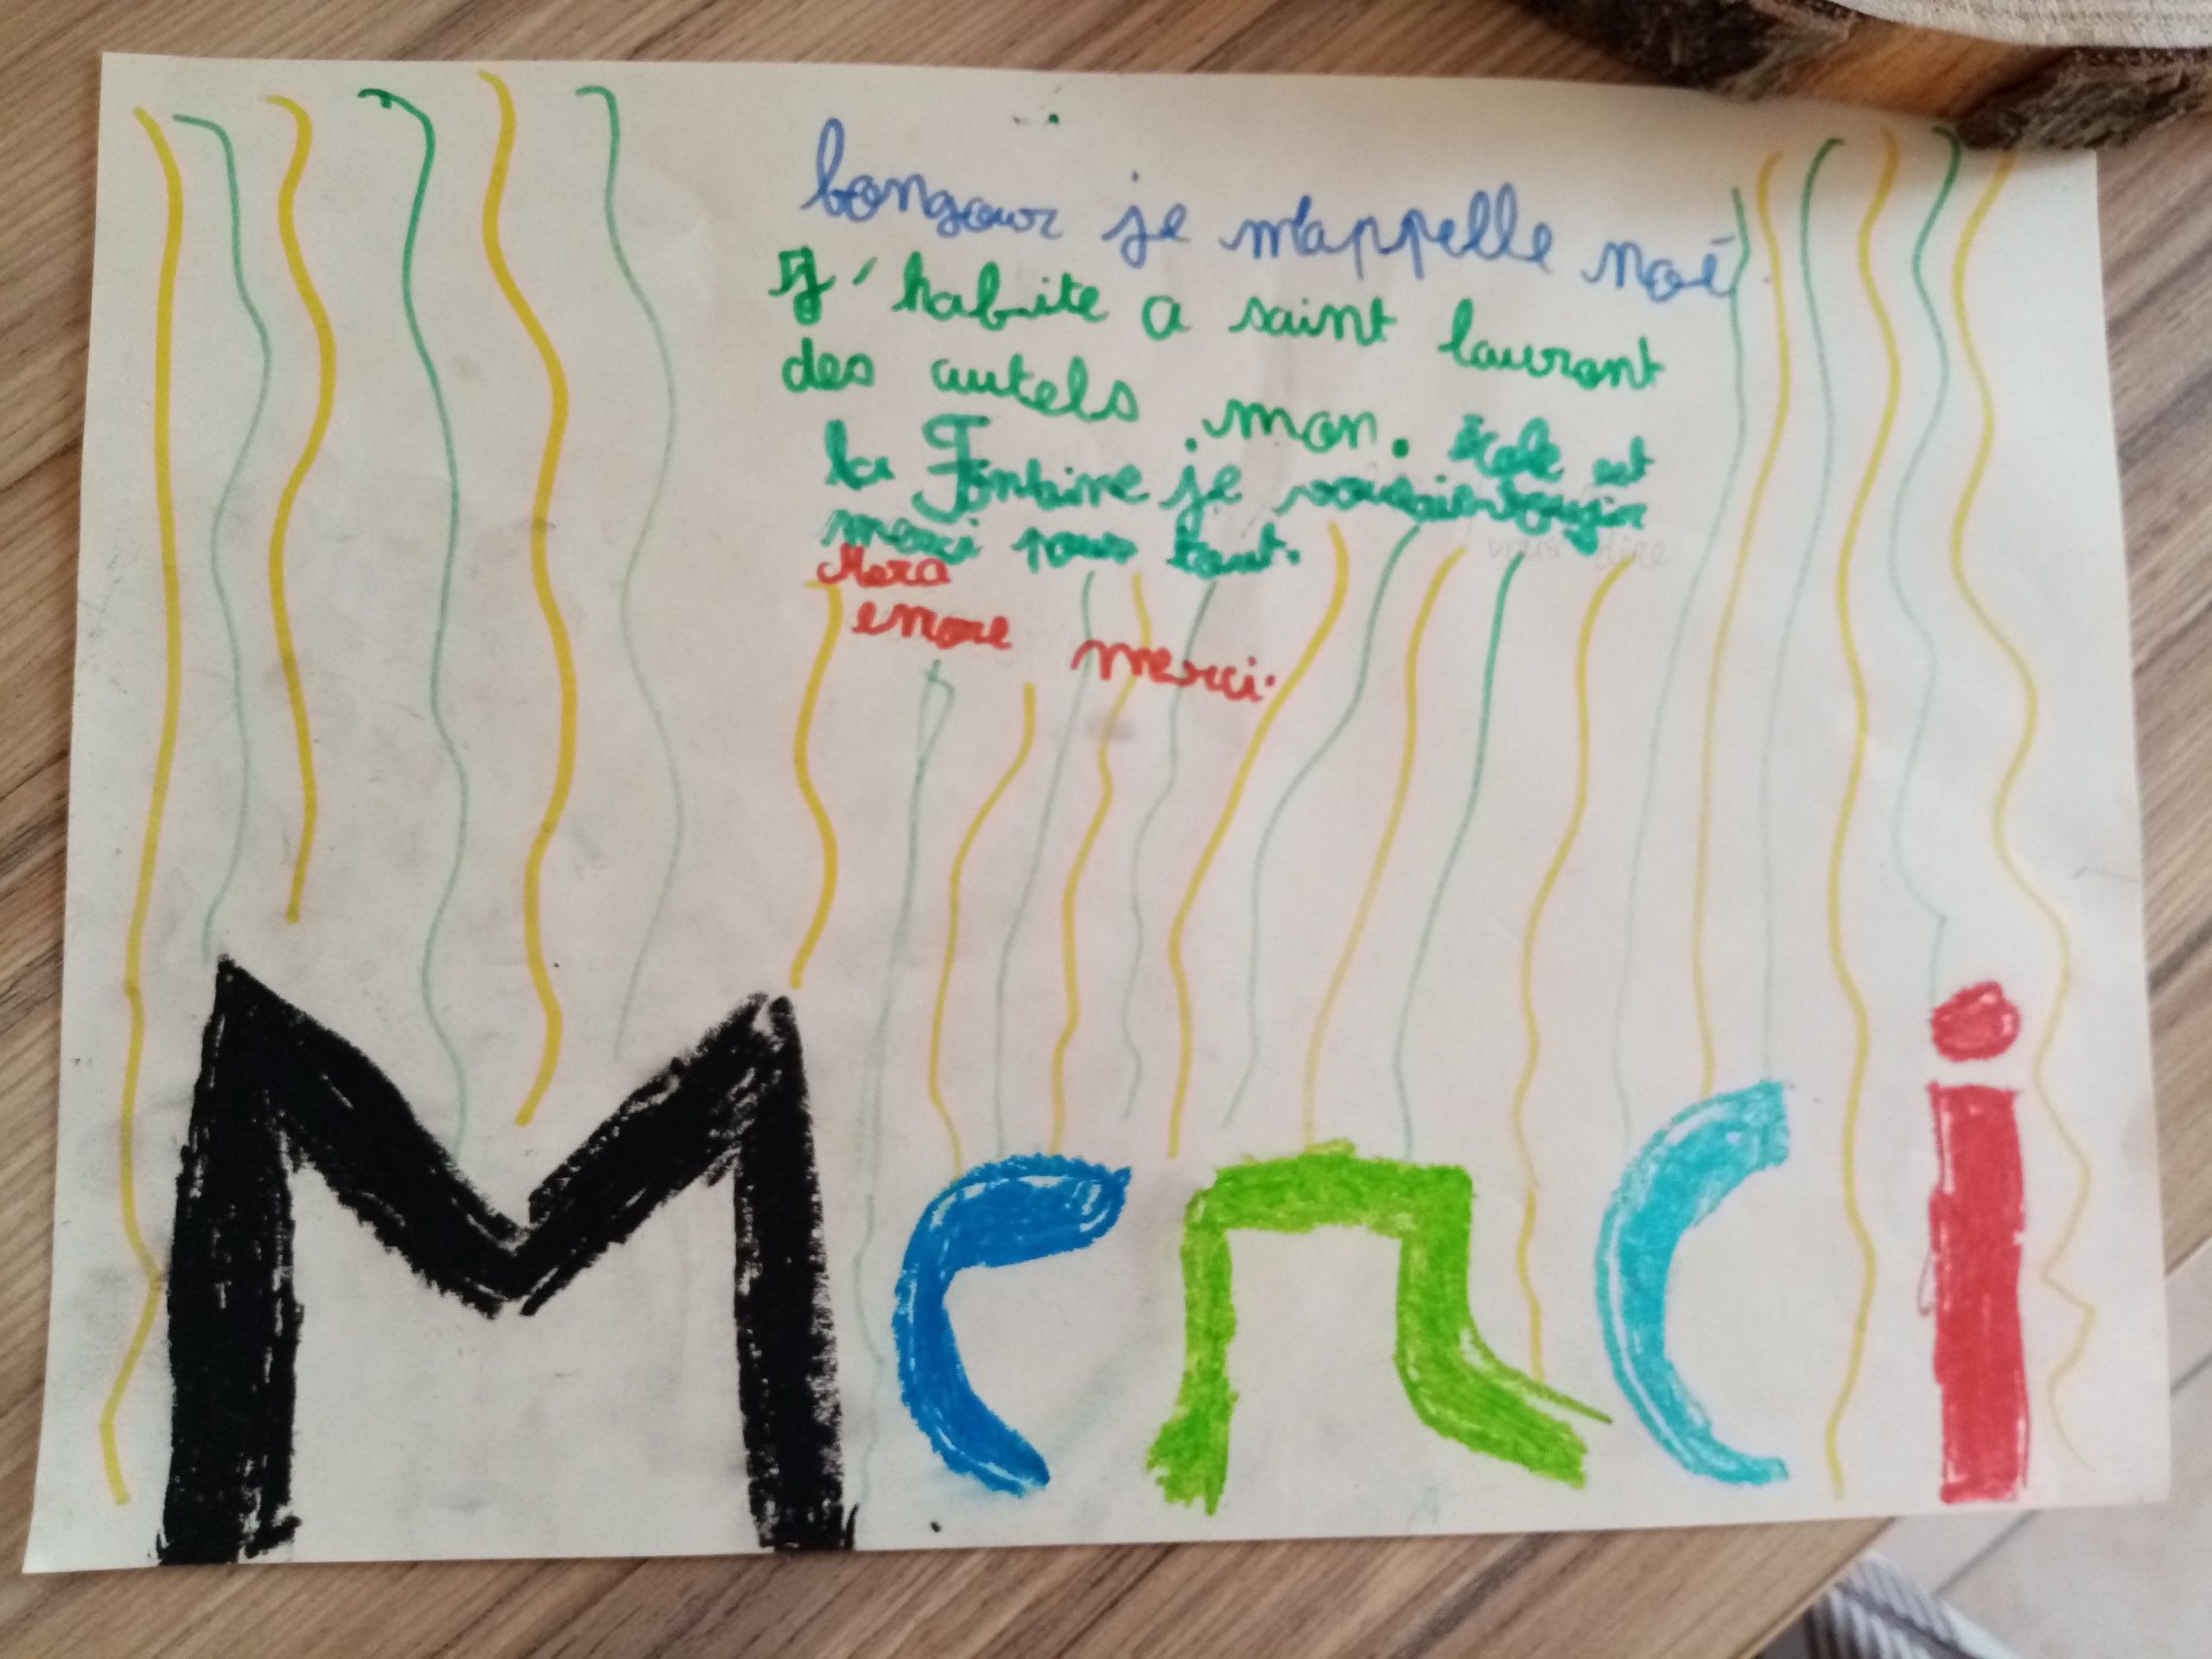 bongour je m'appelle noé
J'habite a saint laurent
des autels . mon. école est
la Fontaine je voudrais
vous dire
merci pour tout.
Merci
encore merci.
Merci